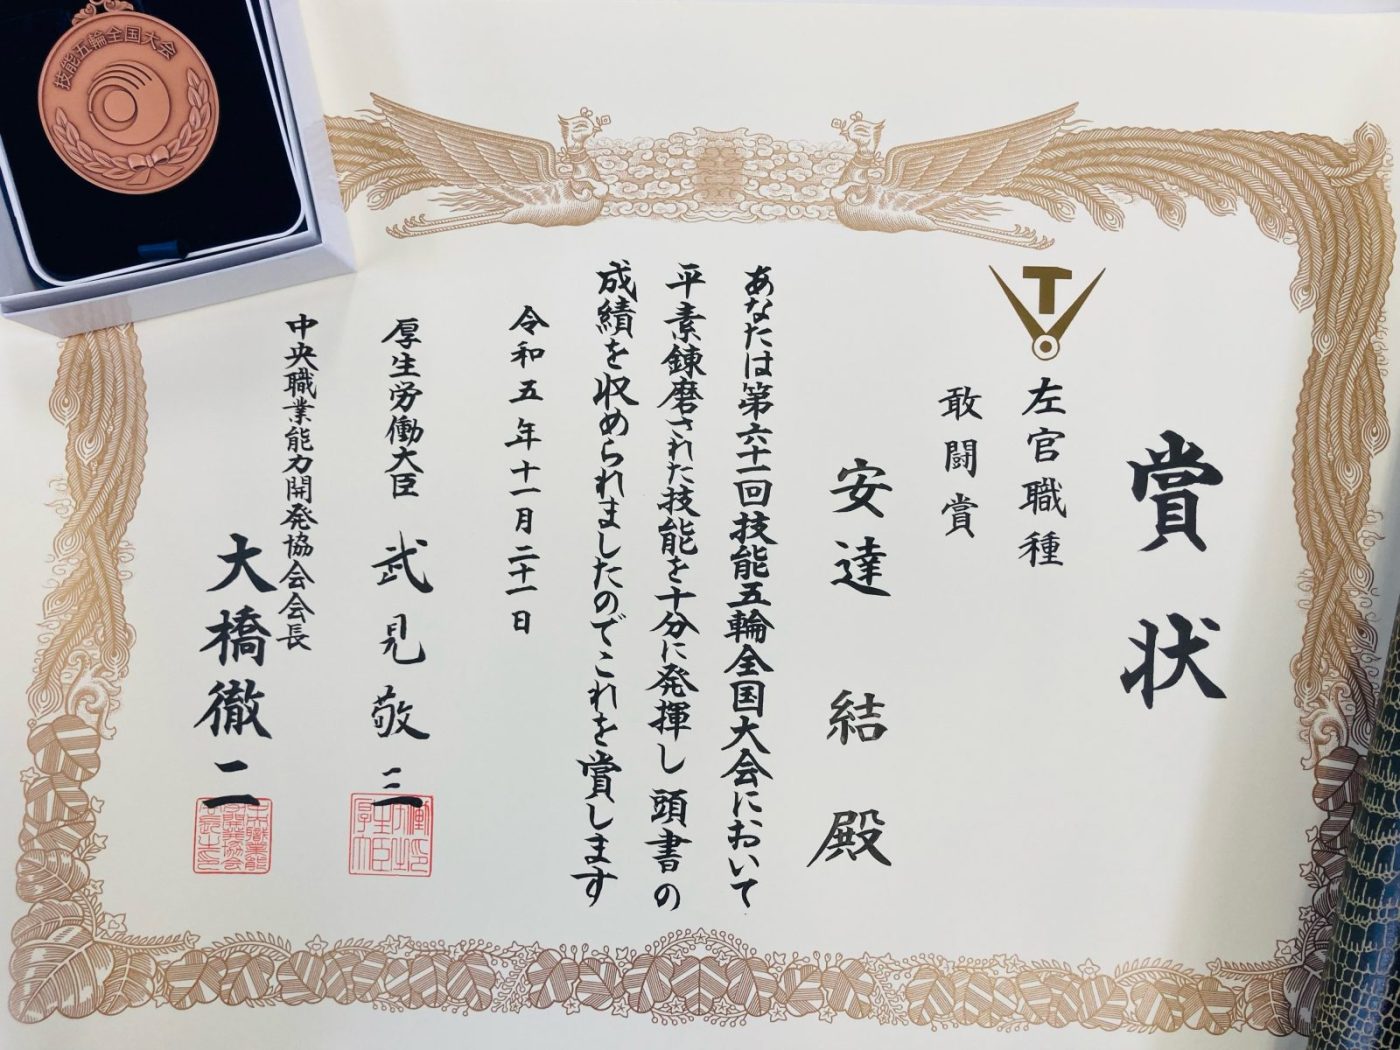 賞状
左官職種
敢闘賞
安達結殿
あなたは第六十一回技能五輪全国大会において
平素錬磨された技能を十分に発揮し頭書の
成績を収められましたのでこれを賞します
令和五年十一月二十一日
厚生労働大臣 武見敬三
中央職業能力開発協会会長
大橋徹二
技能五輪全国大会